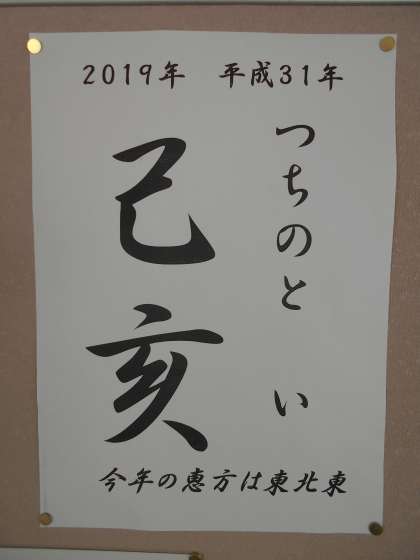 2019年 平成31年
つちのと い
己亥
今年の恵方は東北東